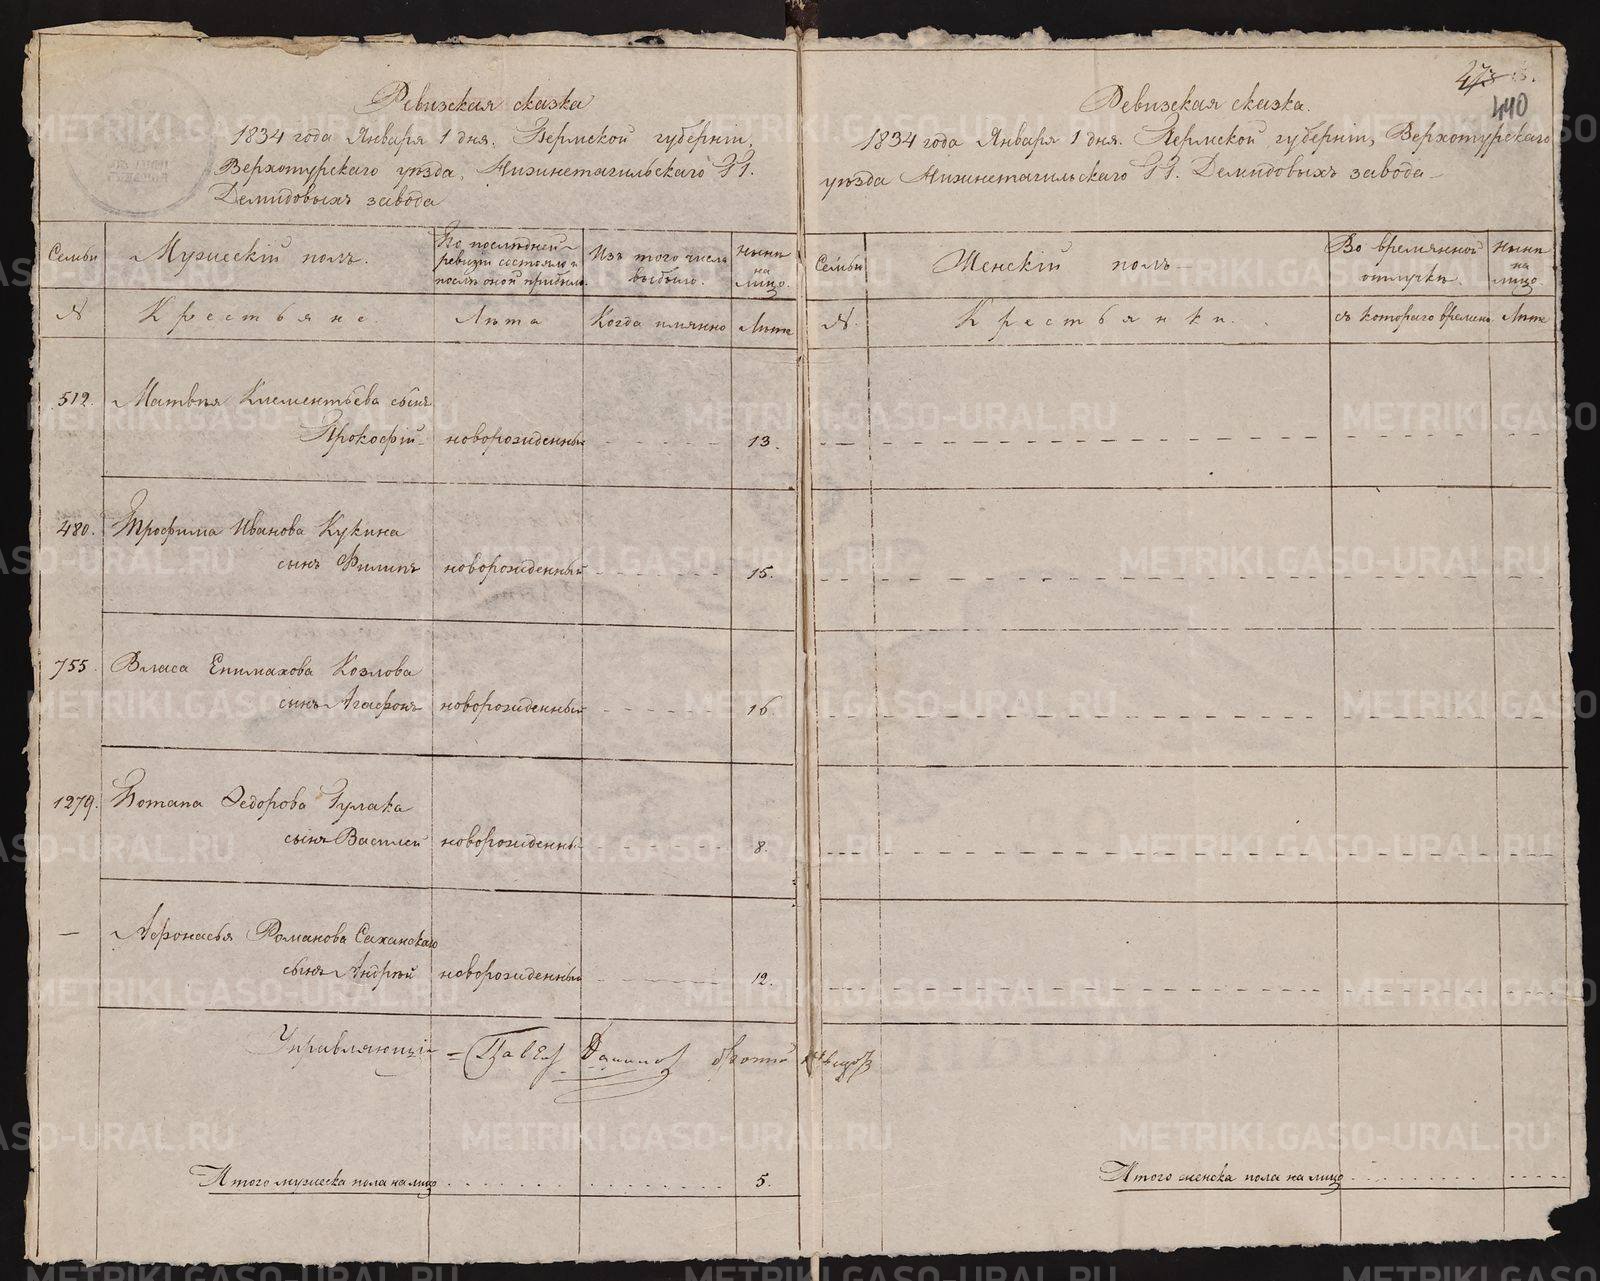 Ревизская сказка
1834 года Января 1 дня. Пермской губернiи,
Верхотурскаго уѣзда, Нижнетагильскаго ГГ.
Демидовыхъ завода
Семьи
Мужескiй полъ.
По послѣдней
ревизiи состояло и
послѣ оной прибыло.
Изъ того числа
выбыло.
нынѣ
на
лицо.
№
Крестьяне
Лѣта
Когда имянно
Лѣта
512.
Матвѣя Клементьева сынъ
Прокофiй
новорожденный
13.
480.
Трофима Иванова Кукина
сынъ Филипъ
новорожденный
15.
755.
Власа Епимахова Козлова
сынъ Агафонъ
новорожденный
16
1279.
Потапа Федорова Гулака
сынъ Василей
новорожденный
8.
Афонасья Романова Саханскаго
сынъ Андрѣй
новорожденный
12.
Управляющiй Павелъ Даниловъ
Итого мужеска пола на лицо
5.
273
440
Ревизская сказка.
1834 года Января 1 дня. Пермской губернiи, Верхотурскаго
уѣзда Нижнетагильскаго ГГ. Демидовыхъ завода
Семьи
Женскiй полъ
Во времянной
отлучки.
нынѣ
на
лицо.
№.
Крестьянки.
съ котораго времени
Лѣта
Итого женска пола на лицо
METRIKI.GASO-URAL.RU